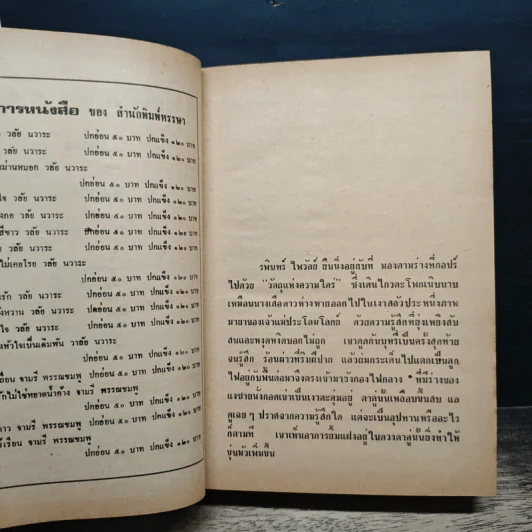 การหนังสือ ของ สำนักพิมพ์หรรษา
วลัย นวาระ ปกอ่อน ๕๐ บาท ปกแข็ง ๑๒๐ บาท
วลัย นวาระ ปกอ่อน ๕๐ บาท ปกแข็ง ๑๒๐ บาท
ม่านหมอก วลัย นวาระ
ปกอ่อน ๕๐ บาท ปกแข็ง ๑๒๐ บาท
ใจ วลัย นวาระ ปกอ่อน ๕๐ บาท ปกแข็ง ๑๒๐ บาท
วลัย นวาระ ปกอ่อน ๕๐ บาท ปกแข็ง ๑๒๐ บาท
สีขาว วลัย นวาระ ปกอ่อน ๕๐ บาท ปกแข็ง ๑๒๐ บาท
วลัย นวาระ ปกอ่อน ๕๐ บาท ปกแข็ง ๑๒๐ บาท
ไม่เคยโรย วลัย นวาระ
ปกอ่อน ๕๐ บาท ปกแข็ง ๑๒๐ บาท
รัก วลัย นวาระ ปกอ่อน ๕๐ บาท ปกแข็ง ๑๒๐ บาท
หวาน วลัย นวาระ ปกอ่อน ๕๐ บาท ปกแข็ง ๑๒๐ บาท
ใจ วลัย นวาระ ปกอ่อน ๕๐ บาท ปกแข็ง ๑๒๐ บาท
หัวใจเป็นเดิมพัน วลัย นวาระ
ปกอ่อน ๕๐ บาท ปกแข็ง ๑๒๐ บาท
จามรี พรรณชมพู
ปกอ่อน ๕๐ บาท ปกแข็ง ๑๒๐ บาท
รักไม่ใช่หยาดน้ำค้าง จามรี พรรณชมพู
ปกอ่อน ๕๐ บาท ปกแข็ง ๑๒๐ บาท
ดาว จามรี พรรณชมพู
ปกอ่อน ๕๐ บาท ปกแข็ง ๑๒๐ บาท
จามรี พรรณชมพู
ปกอ่อน ๕๐ บาท ปกแข็ง ๑๒๐ บาท
รพินทร์ ไพรวัลย์ ยืนนิ่งอยู่กับที่ มองตามร่างที่กอปร์
ไปด้วย "วัตถุแห่งความใคร่" ซึ่งเดินไกวตะโพกเนิบนาบ
เหมือนนางเสือดาวห่างหายออกไปในเงาสลัวประหนึ่งภาพ
มายาของเจ้าแม่ประโลมโลกย์ ด้วยความรู้สึกที่ยุ่งเหยิงสับ
สนและพูดหังตบอกไม่ถูก เขาดูดกับบุหรี่เป็นครั้งสุดท้าย
จนรู้สึก ร้อนผ่าวที่ริมฝีปาก แล้วถ่มกระเด็นไปแตกเป็นลูก
ไฟอยู่กับพื้นต่อมาจึงตรงเข้ามารั้งกองไฟกลาง ที่ที่ร่างของ
แงซายนั่งกอดเข่าเป็นเงาตะคุ่มอยู่ ตาคู่นั้นเหลือบขึ้นสบ แล
ดูเฉย ๆ ปราศจากความรู้สึกใด แต่จะเป็นอุปทานหรืออะไร
ก็ตามที เขาเห็นอาการยิ้มแฝงอยู่ในดวงตาคู่นั้นยิ่งทำให้
ขุ่นมัวเพิ่มขึ้น